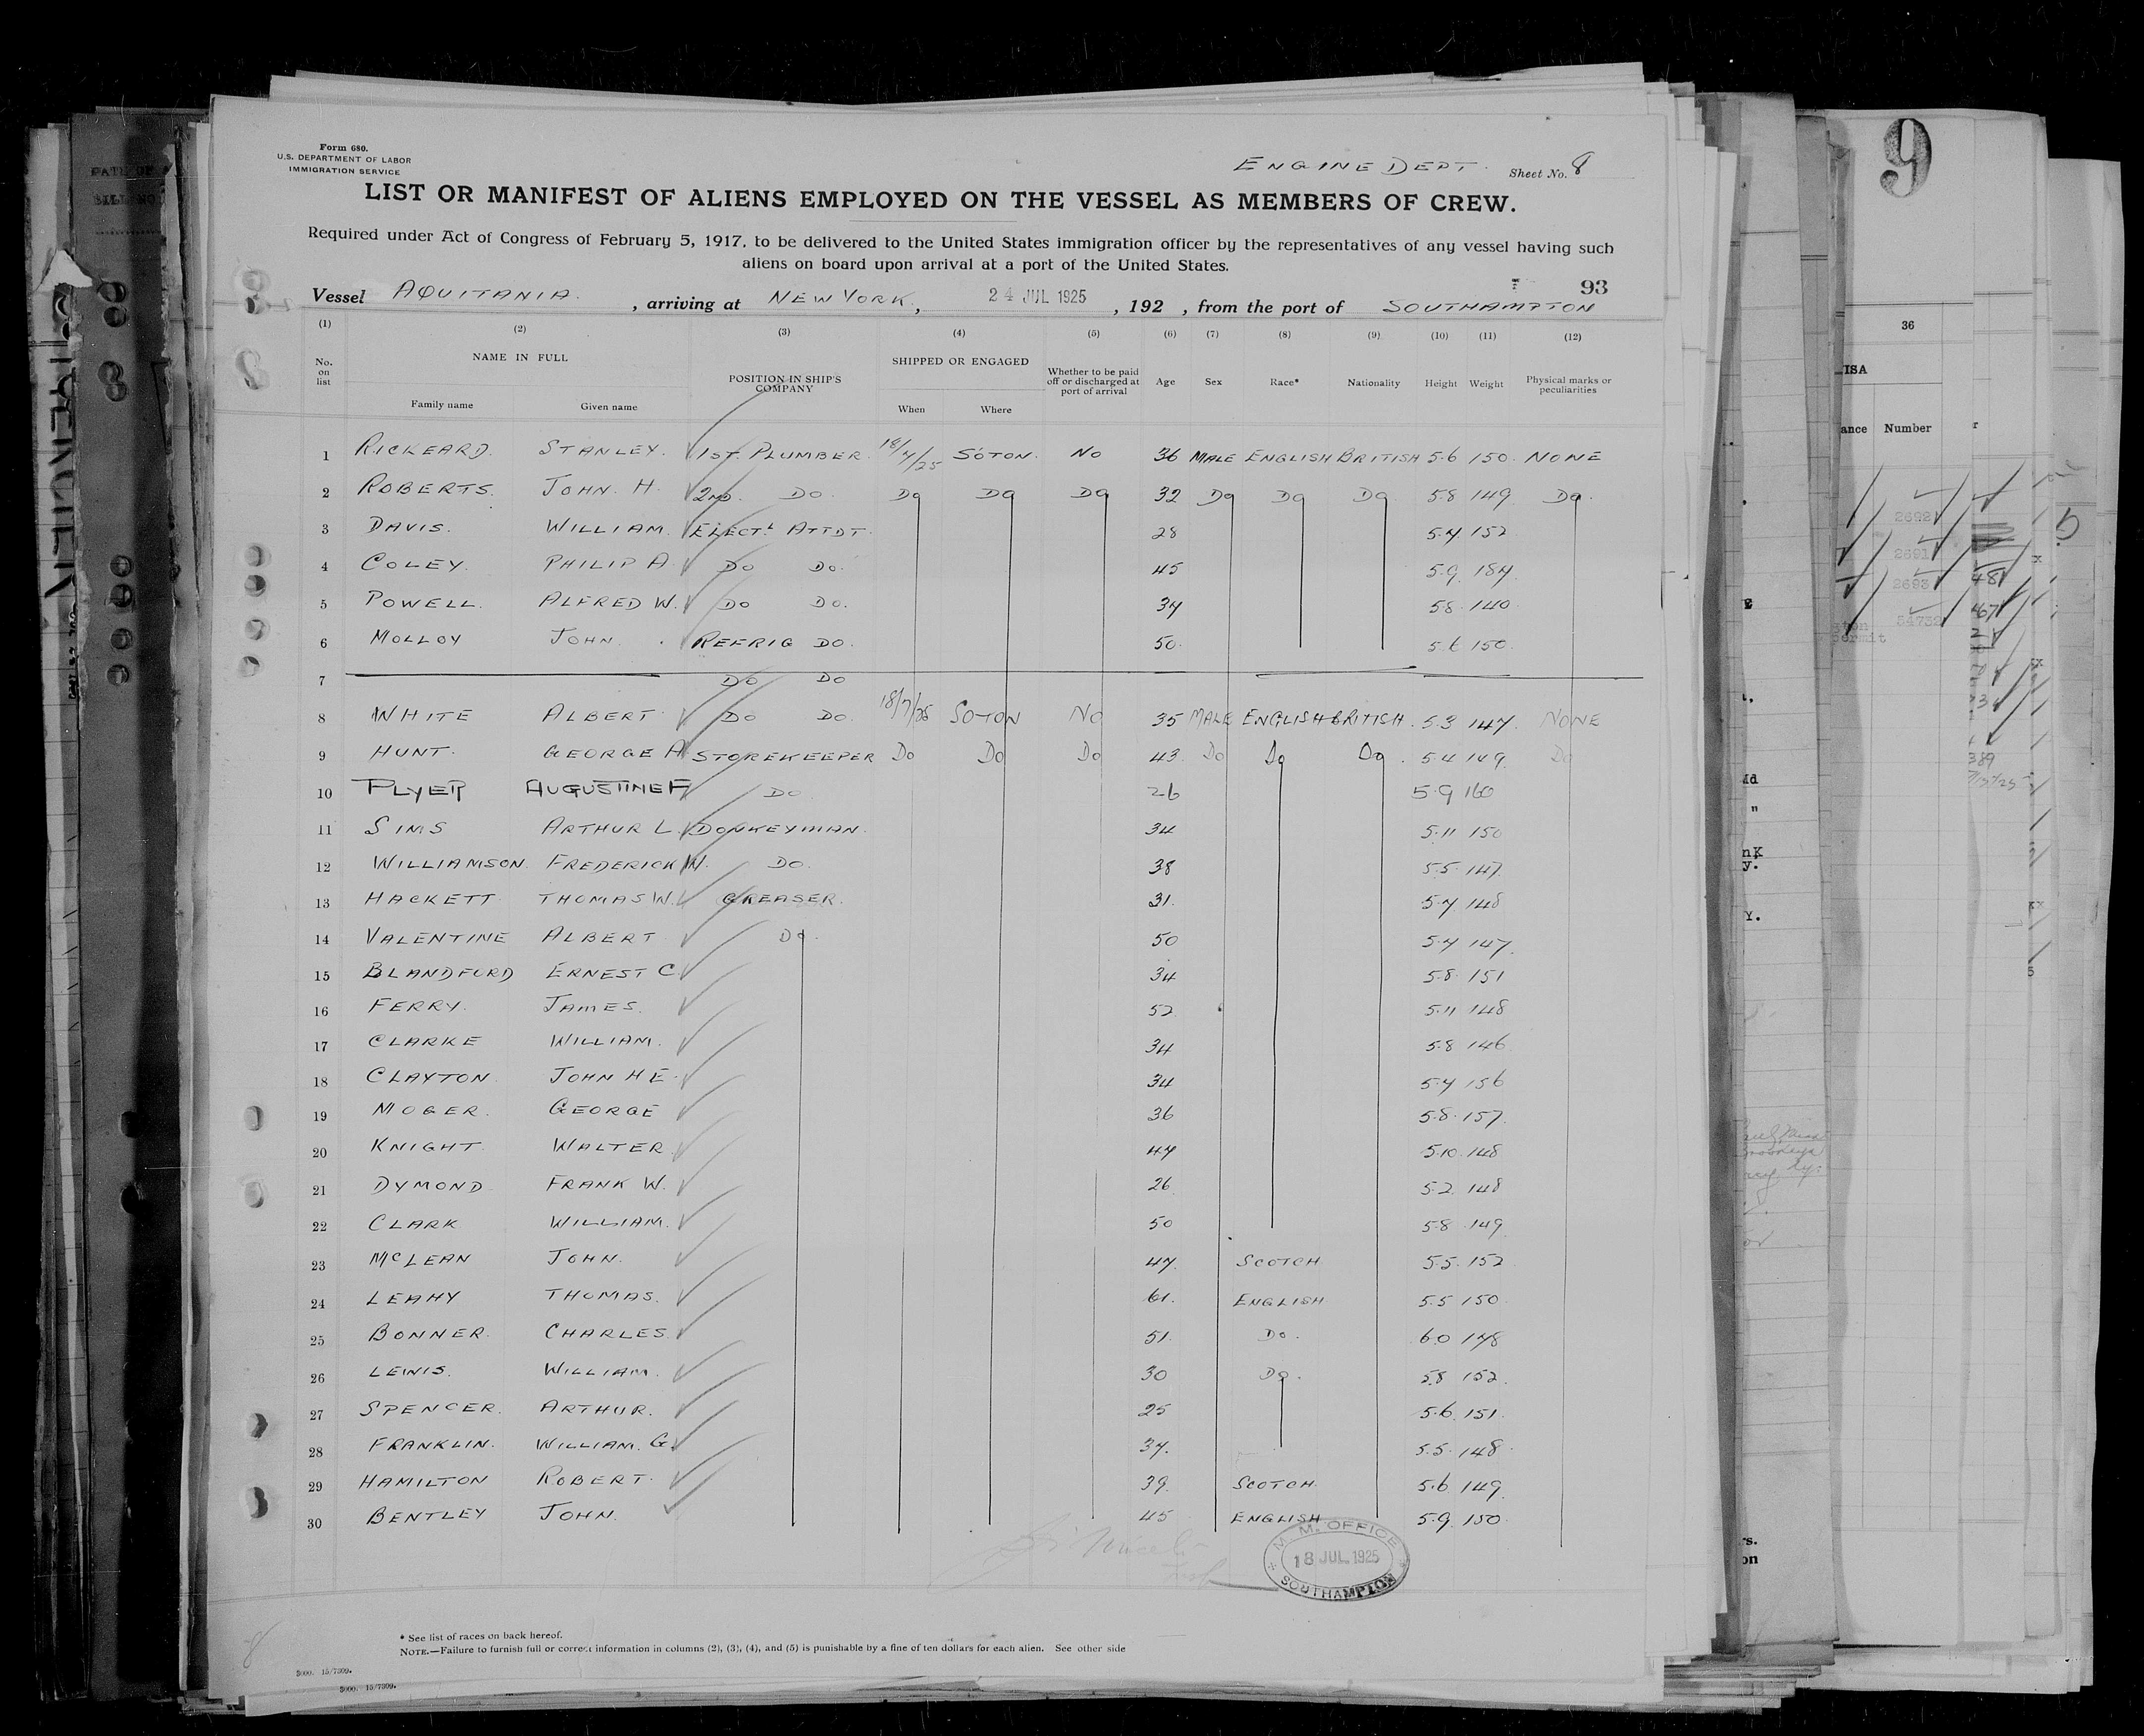 Form 680.
U.S. DEPARTMENT OF LABOR
IMMIGRATION SERVICE
ENGINE DEPT. Sheet No. 8
LIST OR MANIFEST OF ALIENS EMPLOYED ON THE VESSEL AS MEMBERS OF CREW.
Required under Act of Congress of February 5, 1917, to be delivered to the United States immigration officer by the representatives of any vessel having such
aliens on board upon arrival at a port of the United States.
93
Vessel AQUITANIA. , arriving at NEW YORK. , 24 JUL 1925 , 192 , from the port of SOUTHAMPTON
(1) (2) (3) (4) (5) (6) (7) (8) (9) (10) (11) (12)
No. on list NAME IN FULL POSITION IN SHIP'S COMPANY SHIPPED OR ENGAGED Whether to be paid off or discharged at port of arrival Age Sex Race* Nationality Height Weight Physical marks or peculiarities
Family name Given name When Where
1 RICKEARD. STANLEY. 1ST. PLUMBER. 18/7/25 SOTON. NO 36 MALE ENGLISH BRITISH 5.6 150. NONE
2 ROBERTS. JOHN. H. 2ND. DO. DO DO DO 32 DO DO DO 5.8 149 DO.
3 DAVIS. WILLIAM. ELECTL ATTDT. 28 5.7 152
4 COLEY. PHILIP A DO DO. 45 5.9. 184.
5 POWELL. ALFRED W. DO DO. 34 5.8. 140.
6 MOLLOY JOHN. REFRIG DO. 50. 5.6 150.
7 DO DO
8 WHITE ALBERT DO DO. 18/7/25 SOTON NO 35 MALE ENGLISH BRITISH. 5.3 147. NONE
9 HUNT. GEORGE A. STOREKEEPER DO DO DO 43. DO DO DO. 5.4 149. DO
10 PLYER AUGUSTINE F DO 26 5.9 160
11 SIMS ARTHUR L. DONKEYMAN. 34 5.11 150
12 WILLIAMSON. FREDERICK W. DO. 38 5.5. 147.
13 HACKETT THOMAS W. GREASER. 31. 5.7. 148
14 VALENTINE ALBERT DO. 50 5.7 147.
15 BLANDFORD ERNEST C. 34 5.8. 151
16 FERRY. JAMES. 52. 5.11 148
17 CLARKE WILLIAM. 34 5.8 146
18 CLAYTON. JOHN H E. 34 5.7 156
19 MOGER. GEORGE 36 5.8. 157.
20 KNIGHT WALTER 47 5.10. 148
21 DYMOND FRANK W. 26 5.2. 148
22 CLARK WILLIAM. 50 5.8 149
23 MCLEAN JOHN. 47. SCOTCH 5.5. 152
24 LEAHY THOMAS. 61. ENGLISH 5.5 150
25 BONNER. CHARLES. 51. DO. 6.0 178
26 LEWIS. WILLIAM. 30 DO. 5.8 152.
27 SPENCER. ARTHUR. 25 5.6. 151.
28 FRANKLIN. WILLIAM. G. 37. 5.5. 148.
29 HAMILTON ROBERT. 39. SCOTCH. 5.6. 149.
30 BENTLEY JOHN. 45 ENGLISH 5.9. 150.
M. M. OFFICE
18 JUL 1925
SOUTHAMPTON
8
* See list of races on back hereof.
NOTE.—Failure to furnish full or correct information in columns (2), (3), (4), and (5) is punishable by a fine of ten dollars for each alien. See other side
5000. 15/7309.
5000. 15/7309.
9
36
Number
2692
2691
2693
54732
389